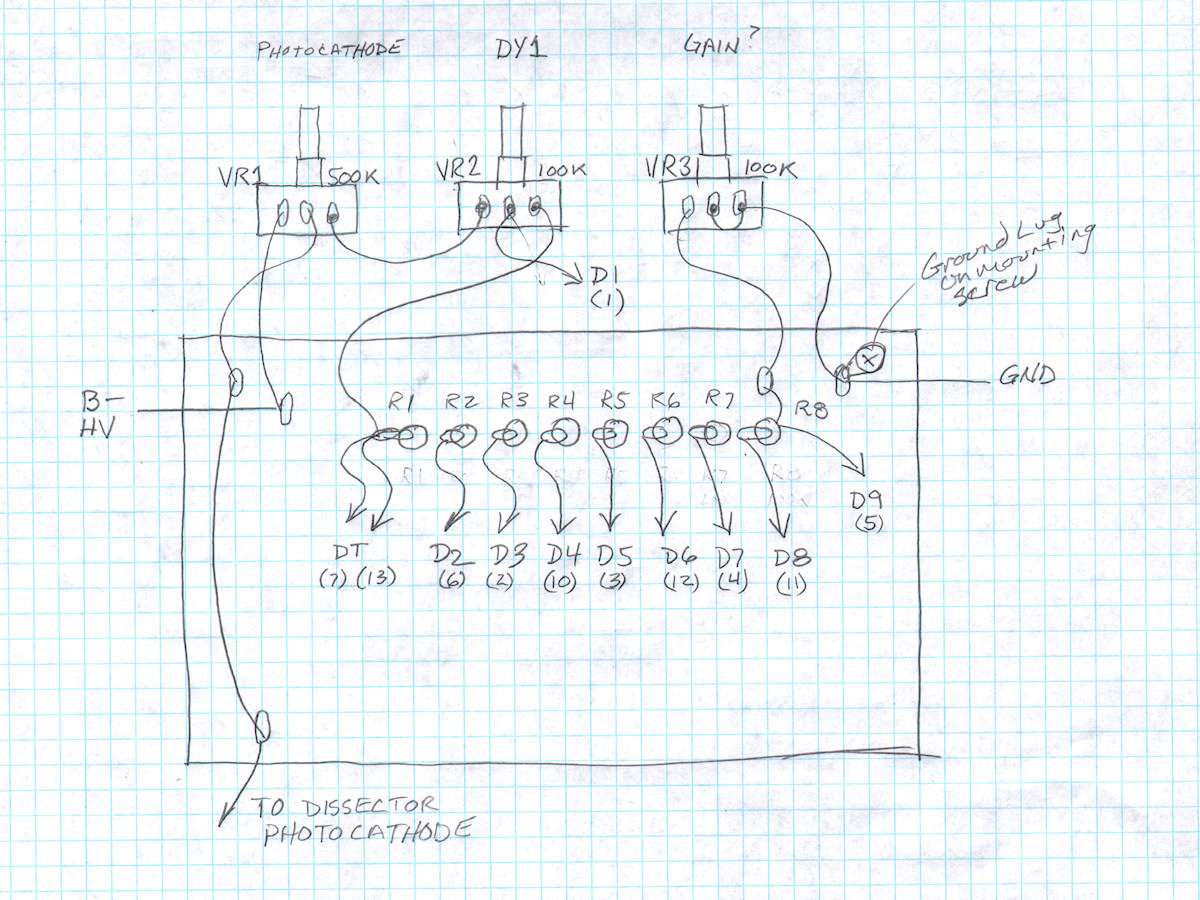 PHOTOCATHODE DY1 GAIN?
VR1 500K VR2 100K VR3 100K
Ground Lug
on mounting
screw
D1
(1)
B-
HV
GND
R1 R2 R3 R4 R5 R6 R7 R8
D9
(5)
DT D2 D3 D4 D5 D6 D7 D8
(7) (13) (6) (2) (10) (3) (12) (4) (11)
TO DISSECTOR
PHOTOCATHODE